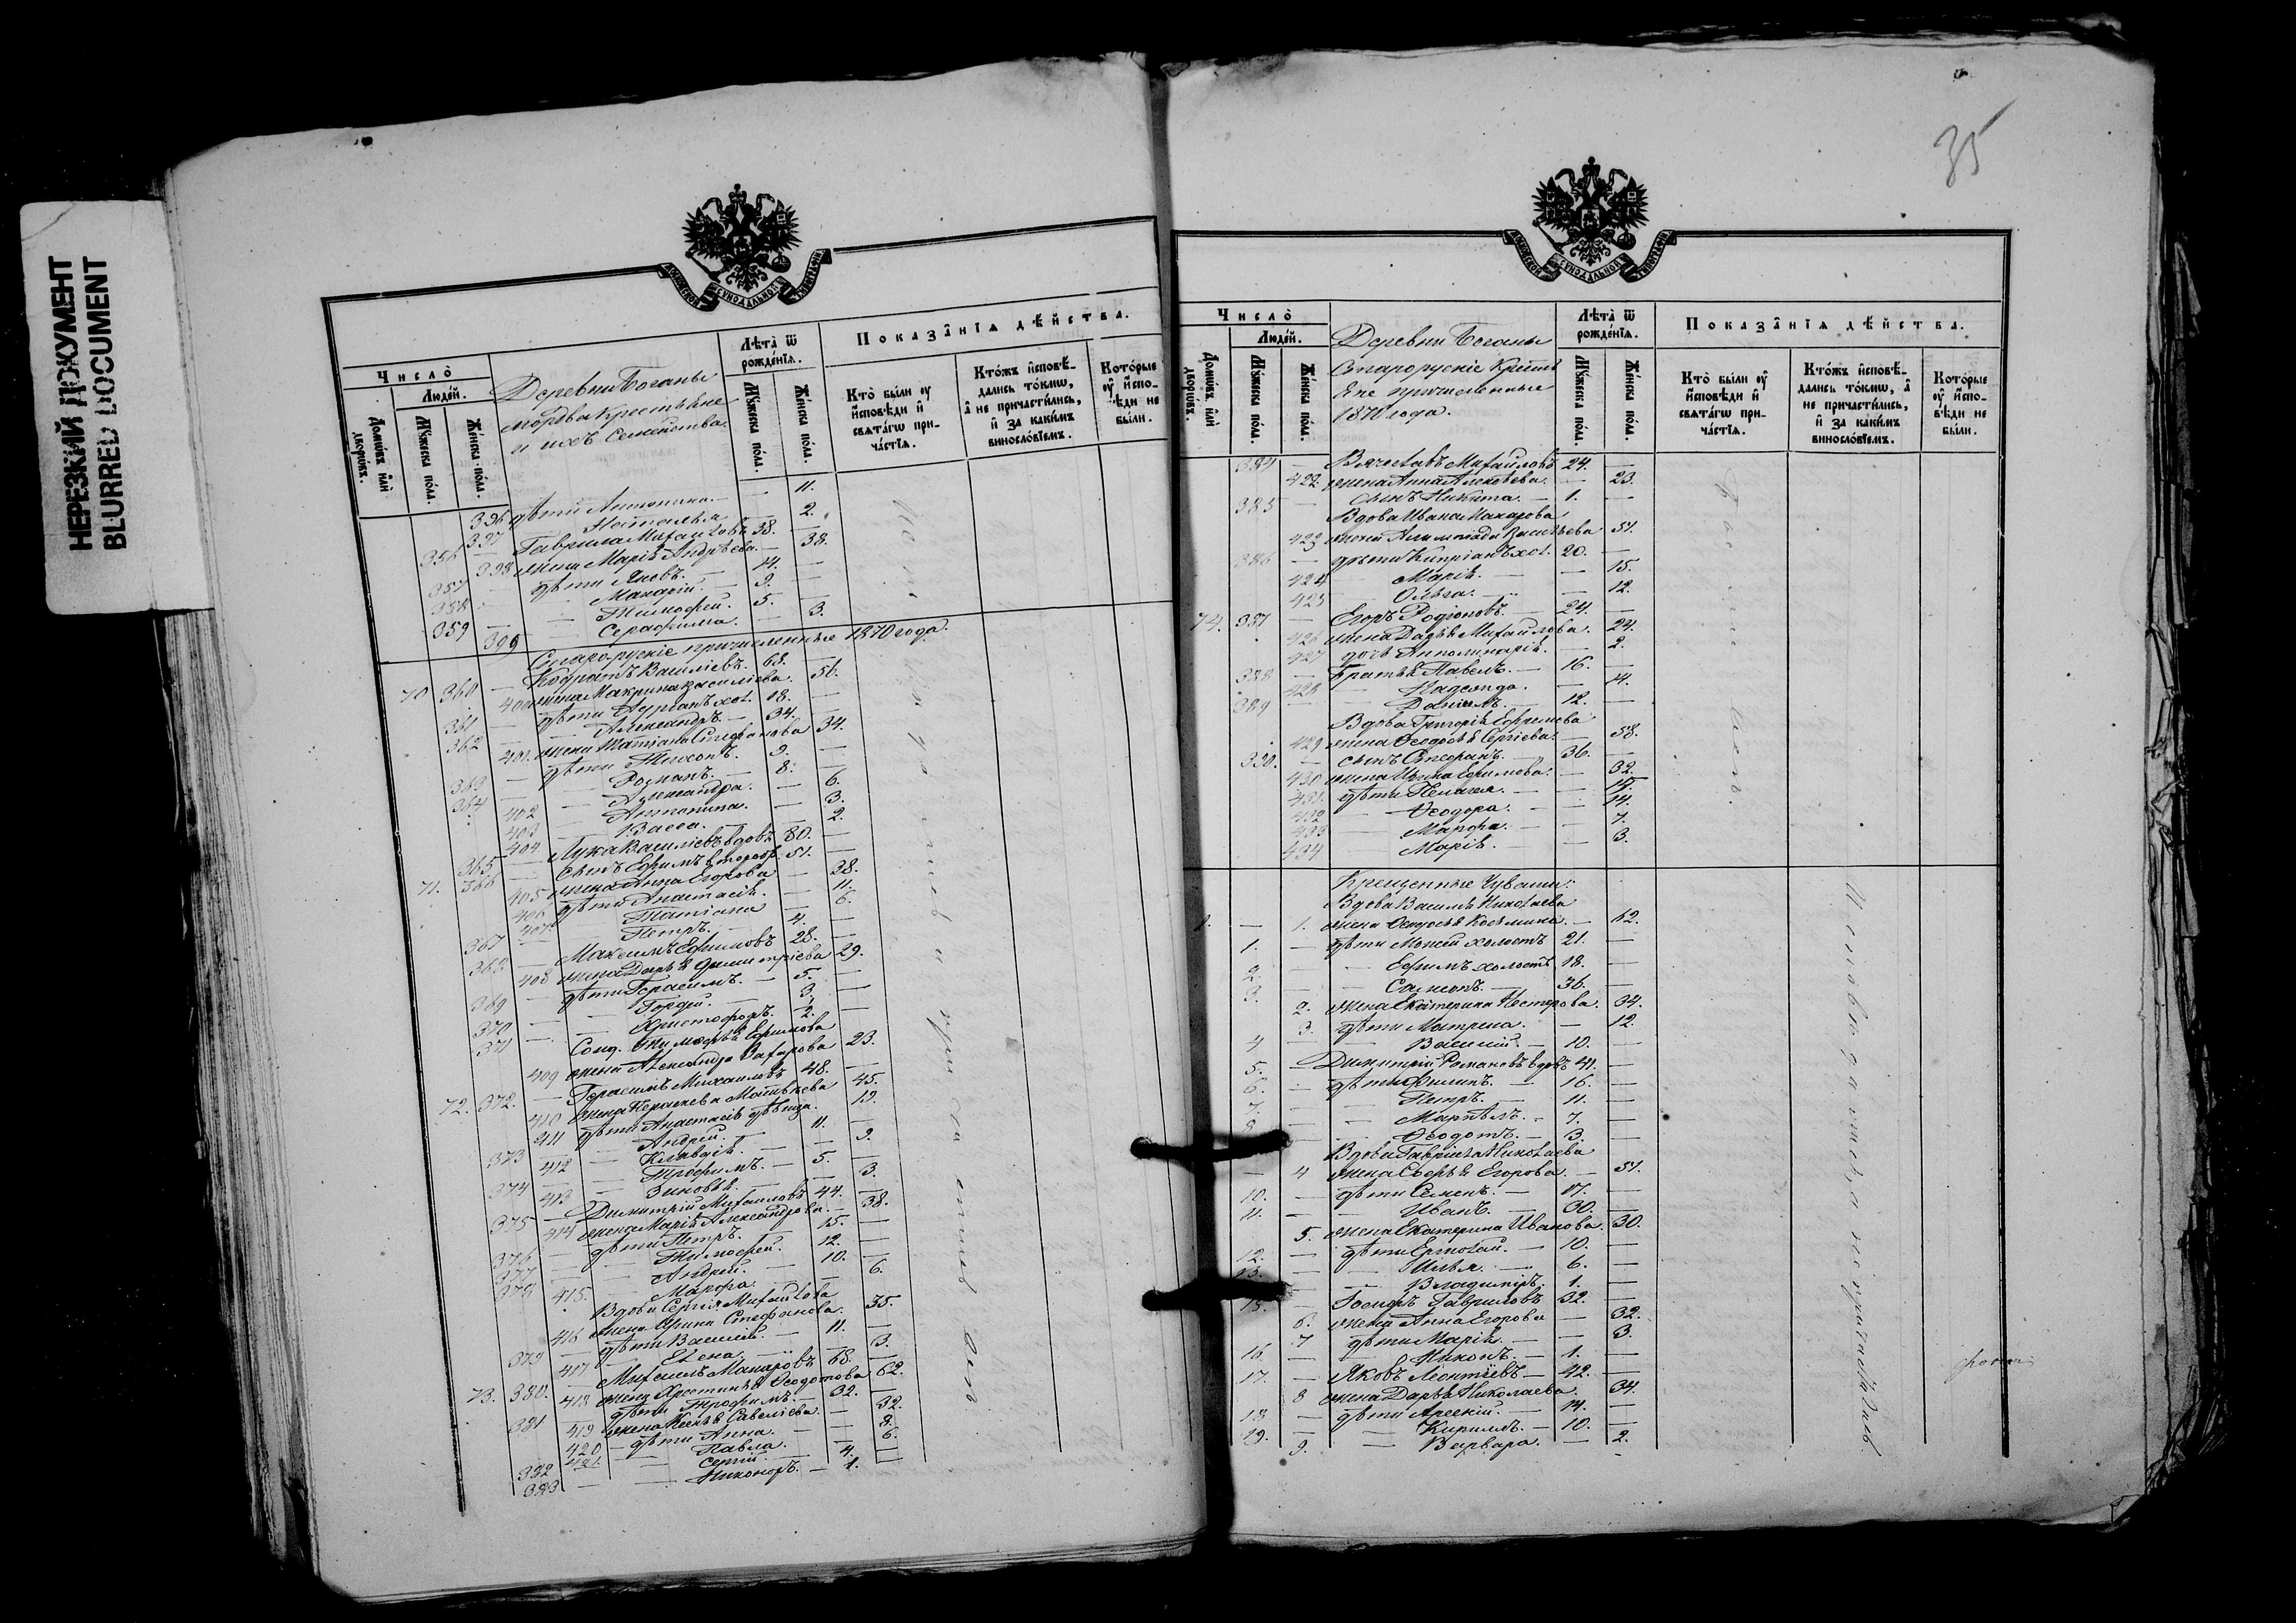 НЕРЕЗКИЙ ДОКУМЕНТ
BLURRED DOCUMENT
МОСКОВСКОЙ СѴНОДАЛЬНОЙ ТИПОГРАФІИ
Число̀
Людей.
Домѡвъ или дворѡвъ.
Мꙋжеска пола.
Женска пола.
Деревни Боганы
мордва крестьяне
и ихъ семейства.
Лѣта̀ ѿ рождéнїѧ.
Мꙋжеска пола.
Женска пола.
Показа̂нїѧ дѣ́йства.
Кто̀ бы́ли ᲂу҆ и҆сповѣди и҆ свѧта́гѡ прича́стїѧ.
Кто́жъ и҆сповѣ́дались то́кмѡ, а҆ не причасти́лись, и҆ за каки́мъ винословїемъ.
Кото́рые ᲂу҆ и҆сповѣди не бы́ли.
396 дѣти Антонина. — 11.
397 Наталья — 2.
356 Гаврила Михаиловъ 38.
398 жена Марія Андрѣева. — 38.
357 дѣти Яковъ. — 14. —
358 Макарій. — 9. —
359 Тимофей. 5. —
399 Серафима. — 3.
Старорускіе причисленные 1870 года.
70 360 — Кодратъ Василіевъ. 68. —
400 жена Макрина Василіева. — 56.
361 — дѣти Авраамъ хол. 18. —
362 — Александръ. — 34. —
401. жена Татіана Стефанова 34.
363 — дѣти Тихонъ. 9. —
364 — Романъ. — 8. —
402 — Александра. — 6.
403 — Антонина. — 3.
404 — Васса. — 2.
365 — Лука Василіевъ вдовъ 80. —
71. 366 — сынъ Ефимъ второбр. 51. —
405 жена Анна Егорова — 38.
406 дѣти Анастасія. — 11.
407 — Татіана — 6.
367 — Петръ. — 4. —
368 — Максимъ Ефимовъ 28. —
408 жена Дарья Димитріева 29.
369 — дѣти Герасимъ. — 5. —
370 — Гордей. — 3. —
371 — Христофоръ. 2. —
Солд. Тимофея Ефимова
409 жена Александра Захарова 23.
72. 372. — Герасимъ Михаиловъ 48. —
410 жена Параскева Матвѣева 45.
411 дѣти Анастасія дѣвица. 19.
373 — Андрей. — 11. —
412 — Клавдія. — 9.
374 — Трофимъ. — 5. —
413 — Зиновья. — 3.
375 — Димитрій Михаиловъ 44. —
414 жена Марія Александрова. — 38.
376 — дѣти Петръ. — 15. —
377 — Тимофей. 12. —
378 — Андрей. — 10. —
415. — Марфа. — 6.
Вдова Сергія Михаилова
416 жена Ирина Стефанова. 35.
379 — дѣти Василій. — 11. —
417 — Елена — 3.
73. 380. — Михаилъ Макаровъ 68. —
418 жена Христинья Ѳеодотова 62.
381 — дѣти Трофимъ. — 32. —
419 жена Ксенья Савеліева. — 32.
420 — дѣти Анна. — 8.
421. — Павла. — 6.
382 — Сергій. — 4. —
383 — Никоноръ. — 1. —
35
МОСКОВСКОЙ СѴНОДАЛЬНОЙ ТИПОГРАФІИ
Число̀
Людей.
Домѡвъ или дворѡвъ.
Мꙋжеска пола.
Женска пола.
Деревни Боганы
Старорускіе Крестьяне причисленные
1870 года.
Лѣта̀ ѿ рождéнїѧ.
Мꙋжеска пола.
Женска пола.
Показа̂нїѧ дѣ́йства.
Кто̀ бы́ли ᲂу҆ и҆сповѣди и҆ свѧта́гѡ прича́стїѧ.
Кто́жъ и҆сповѣ́дались то́кмѡ, а҆ не причасти́лись, и҆ за каки́мъ винословїемъ.
Кото́рые ᲂу҆ и҆сповѣди не бы́ли.
384 — Вячеславъ Михаиловъ 24. —
422. жена Анна Алексѣева. — 23.
385 — сынъ Никита. — 1. —
Вдова Ивана Макарова
423 жена Васильева 51.
386 — дѣти Кипріанъ хол. 20. —
424 Марія. — 15.
425 Ольга. — 12.
74. 387 — Егоръ Родіоновъ. — 24. —
426 жена Дарья Михайлова. 24.
427 дочь Апполинарія. — 2.
388 — братья Павелъ. — 16. —
428 — Надежда. — 14.
389 — Даніилъ. — 12. —
Вдова Григорія Ефремова
429 жена Ѳеодосья Сергіева. — 58.
390. — сынъ Стефанъ. — 36. —
430 жена Ефимова. — 32.
431. дѣти Пелагея. — 17.
432 — Ѳеодора. — 14.
433 — Марфа. — 7.
434 Марія. — 3.
Крещенные Чуваши:
Вдова Василія Николаева
1. — 1. жена Ѳедосья Косьмина. — 62.
1. — дѣти Моисей холостъ 21. —
2. — Ефимъ холостъ 18. —
3. — Самсонъ. — 36. —
2. жена Екатерина Нестерова. 34.
3. дѣти Матрена. — 12.
4 — Василій. — 10. —
5. — Димитрій Романовъ вдовъ 41. —
6. — дѣти Филипъ. — 16. —
7. — Петръ. — 11. —
— 7. —
9. — Ѳеодотъ. — 3. —
Вдова Гавріила Николаева
— 4 жена Софья Егорова. — 51.
10. — дѣти Семенъ. — 17. —
11. — Иванъ. — 30. —
5. жена Екатерина Иванова. 30.
12. — дѣти Ермолай. — 10. —
13. — Илья. — 6. —
Владиміръ. 1. —
15. — Іосифъ Гавриловъ 32. —
6. жена Анна Егорова — 32.
7 дѣти Марія. — 3.
16. — Никонъ. — 1. —
17. — Яковъ Леонтіевъ — 42. —
8 жена Дарья Николаева. 34.
18 — дѣти Арсеній. — 14. —
19. — Кирилъ. — 10. —
9. — Варвара. — 2.